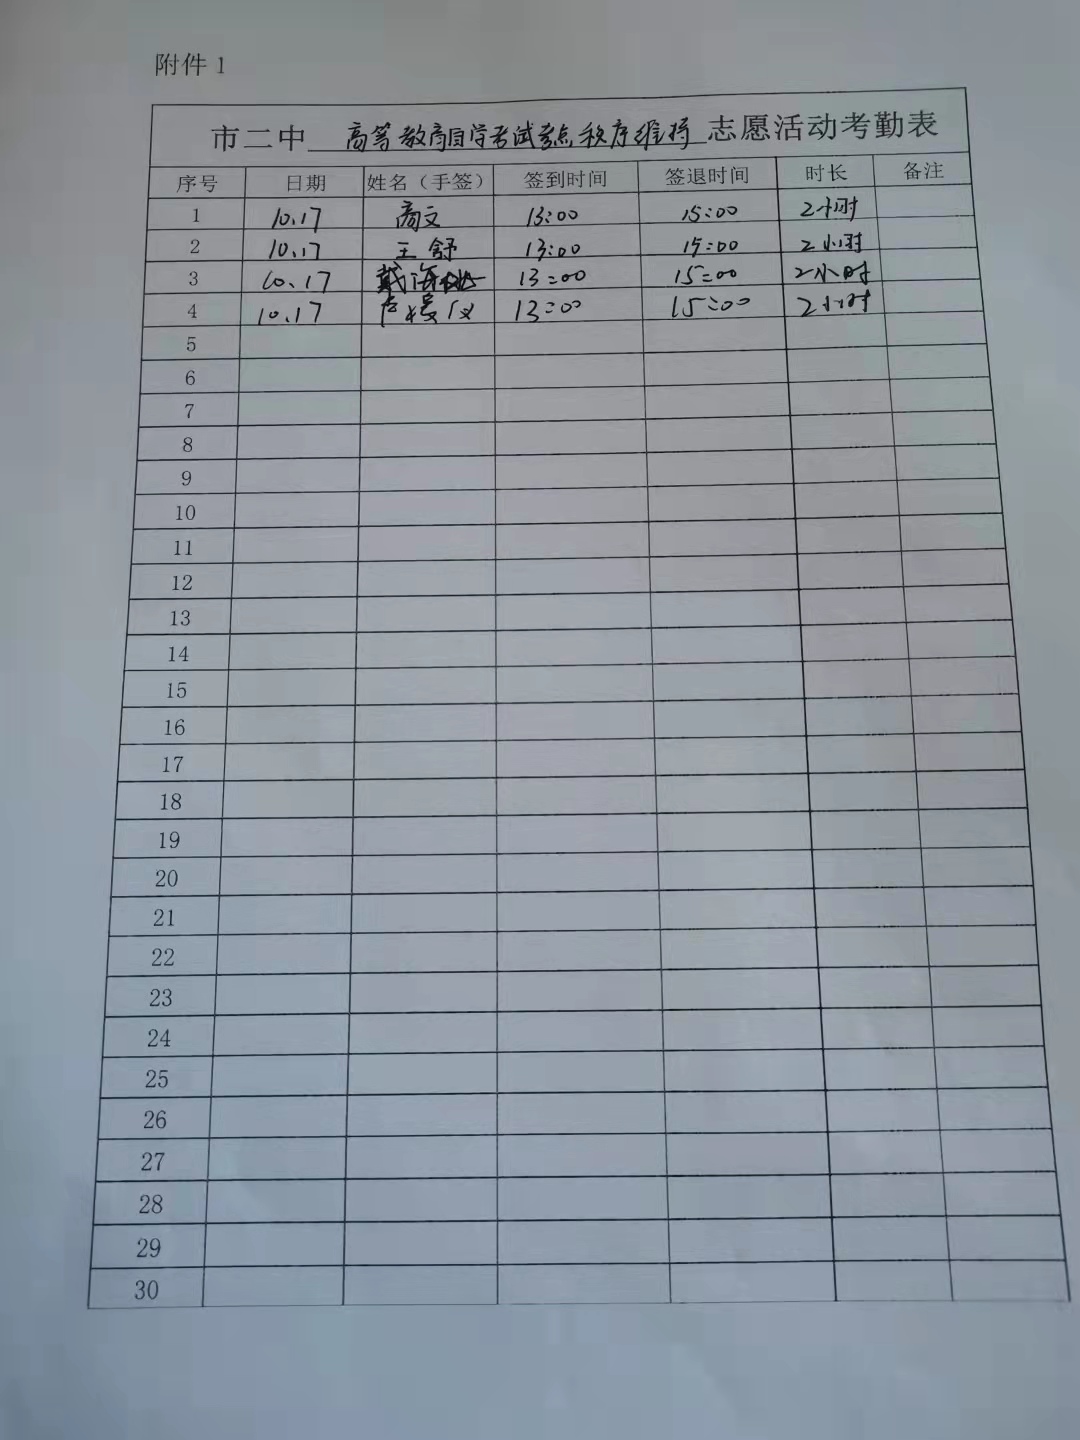 附件 1
市二中 高等教育自学考试考点秩序维持 志愿活动考勤表
序号 日期 姓名（手签） 签到时间 签退时间 时长 备注
1 10.17 商文 13:00 15:00 2小时
2 10.17 王舒 13:00 15:00 2小时
3 10.17 戴海 13:00 15:00 2小时
4 10.17 13:00 15:00 2小时
5
6
7
8
9
10
11
12
13
14
15
16
17
18
19
20
21
22
23
24
25
26
27
28
29
30